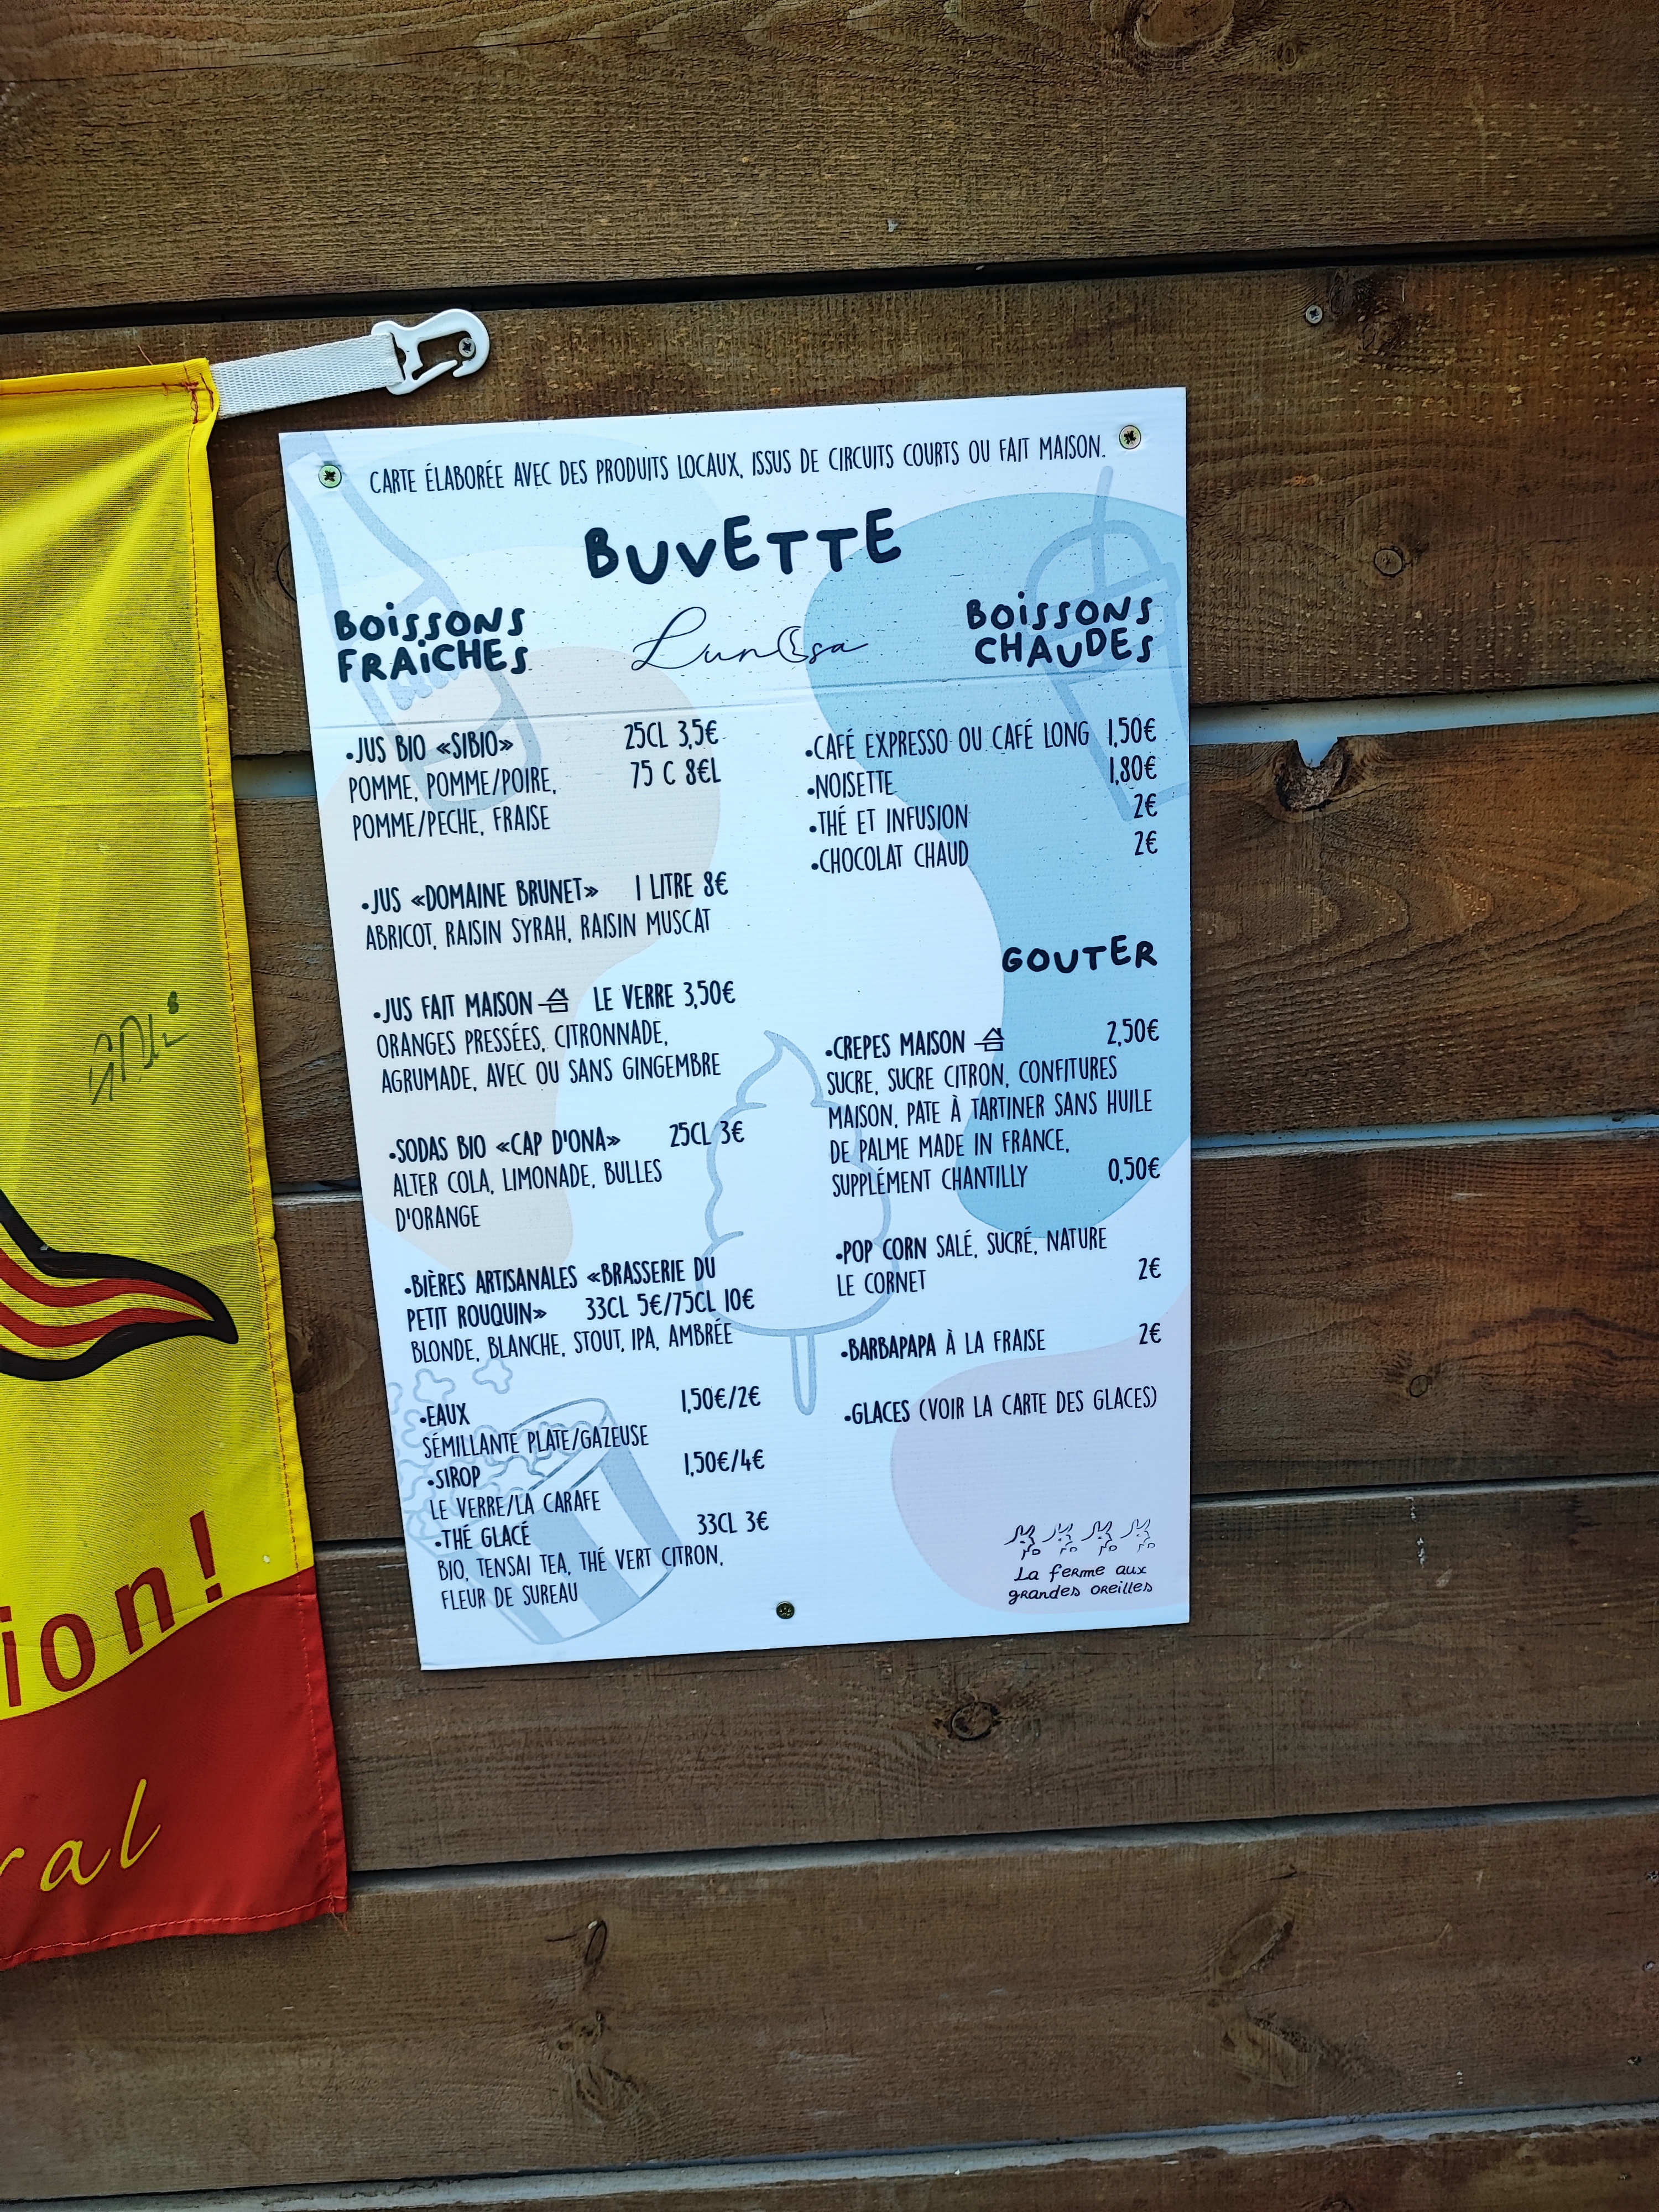 CARTE ÉLABORÉE AVEC DES PRODUITS LOCAUX, ISSUS DE CIRCUITS COURTS OU FAIT MAISON.
BUVETTE
Lunosa
BOISSONS
FRAICHES
•JUS BIO «SIBIO» 25CL 3,5€
POMME, POMME/POIRE, 75 C 8€L
POMME/PECHE, FRAISE
•JUS «DOMAINE BRUNET» 1 LITRE 8€
ABRICOT, RAISIN SYRAH, RAISIN MUSCAT
•JUS FAIT MAISON LE VERRE 3,50€
ORANGES PRESSÉES, CITRONNADE,
AGRUMADE, AVEC OU SANS GINGEMBRE
•SODAS BIO «CAP D'ONA» 25CL 3€
ALTER COLA, LIMONADE, BULLES
D'ORANGE
•BIÈRES ARTISANALES «BRASSERIE DU
PETIT ROUQUIN» 33CL 5€/75CL 10€
BLONDE, BLANCHE, STOUT, IPA, AMBRÉE
•EAUX 1,50€/2€
SÉMILLANTE PLATE/GAZEUSE
•SIROP 1,50€/4€
LE VERRE/LA CARAFE
•THÉ GLACÉ 33CL 3€
BIO, TENSAI TEA, THÉ VERT CITRON,
FLEUR DE SUREAU
BOISSONS
CHAUDES
•CAFÉ EXPRESSO OU CAFÉ LONG 1,50€
•NOISETTE 1,80€
•THÉ ET INFUSION 2€
•CHOCOLAT CHAUD 2€
GOUTER
•CREPES MAISON 2,50€
SUCRE, SUCRE CITRON, CONFITURES
MAISON, PATE À TARTINER SANS HUILE
DE PALME MADE IN FRANCE,
SUPPLÉMENT CHANTILLY 0,50€
•POP CORN SALÉ, SUCRÉ, NATURE
LE CORNET 2€
•BARBAPAPA À LA FRAISE 2€
•GLACES (VOIR LA CARTE DES GLACES)
La ferme aux
grandes oreilles
ion!
ral